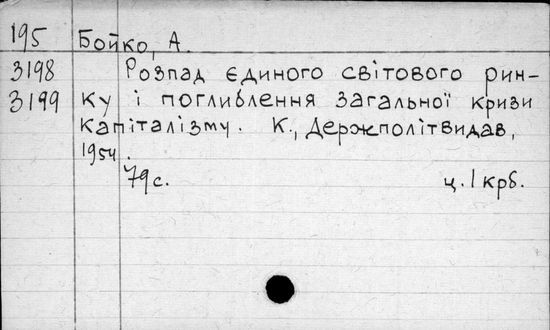 195 Бойко, А.
3198 Розпад єдиного світового рин-
3199 ку і поглиблення загальної кризи
капіталізму. К., Держполітвидав,
1954.
79с. ц. 1 крб.